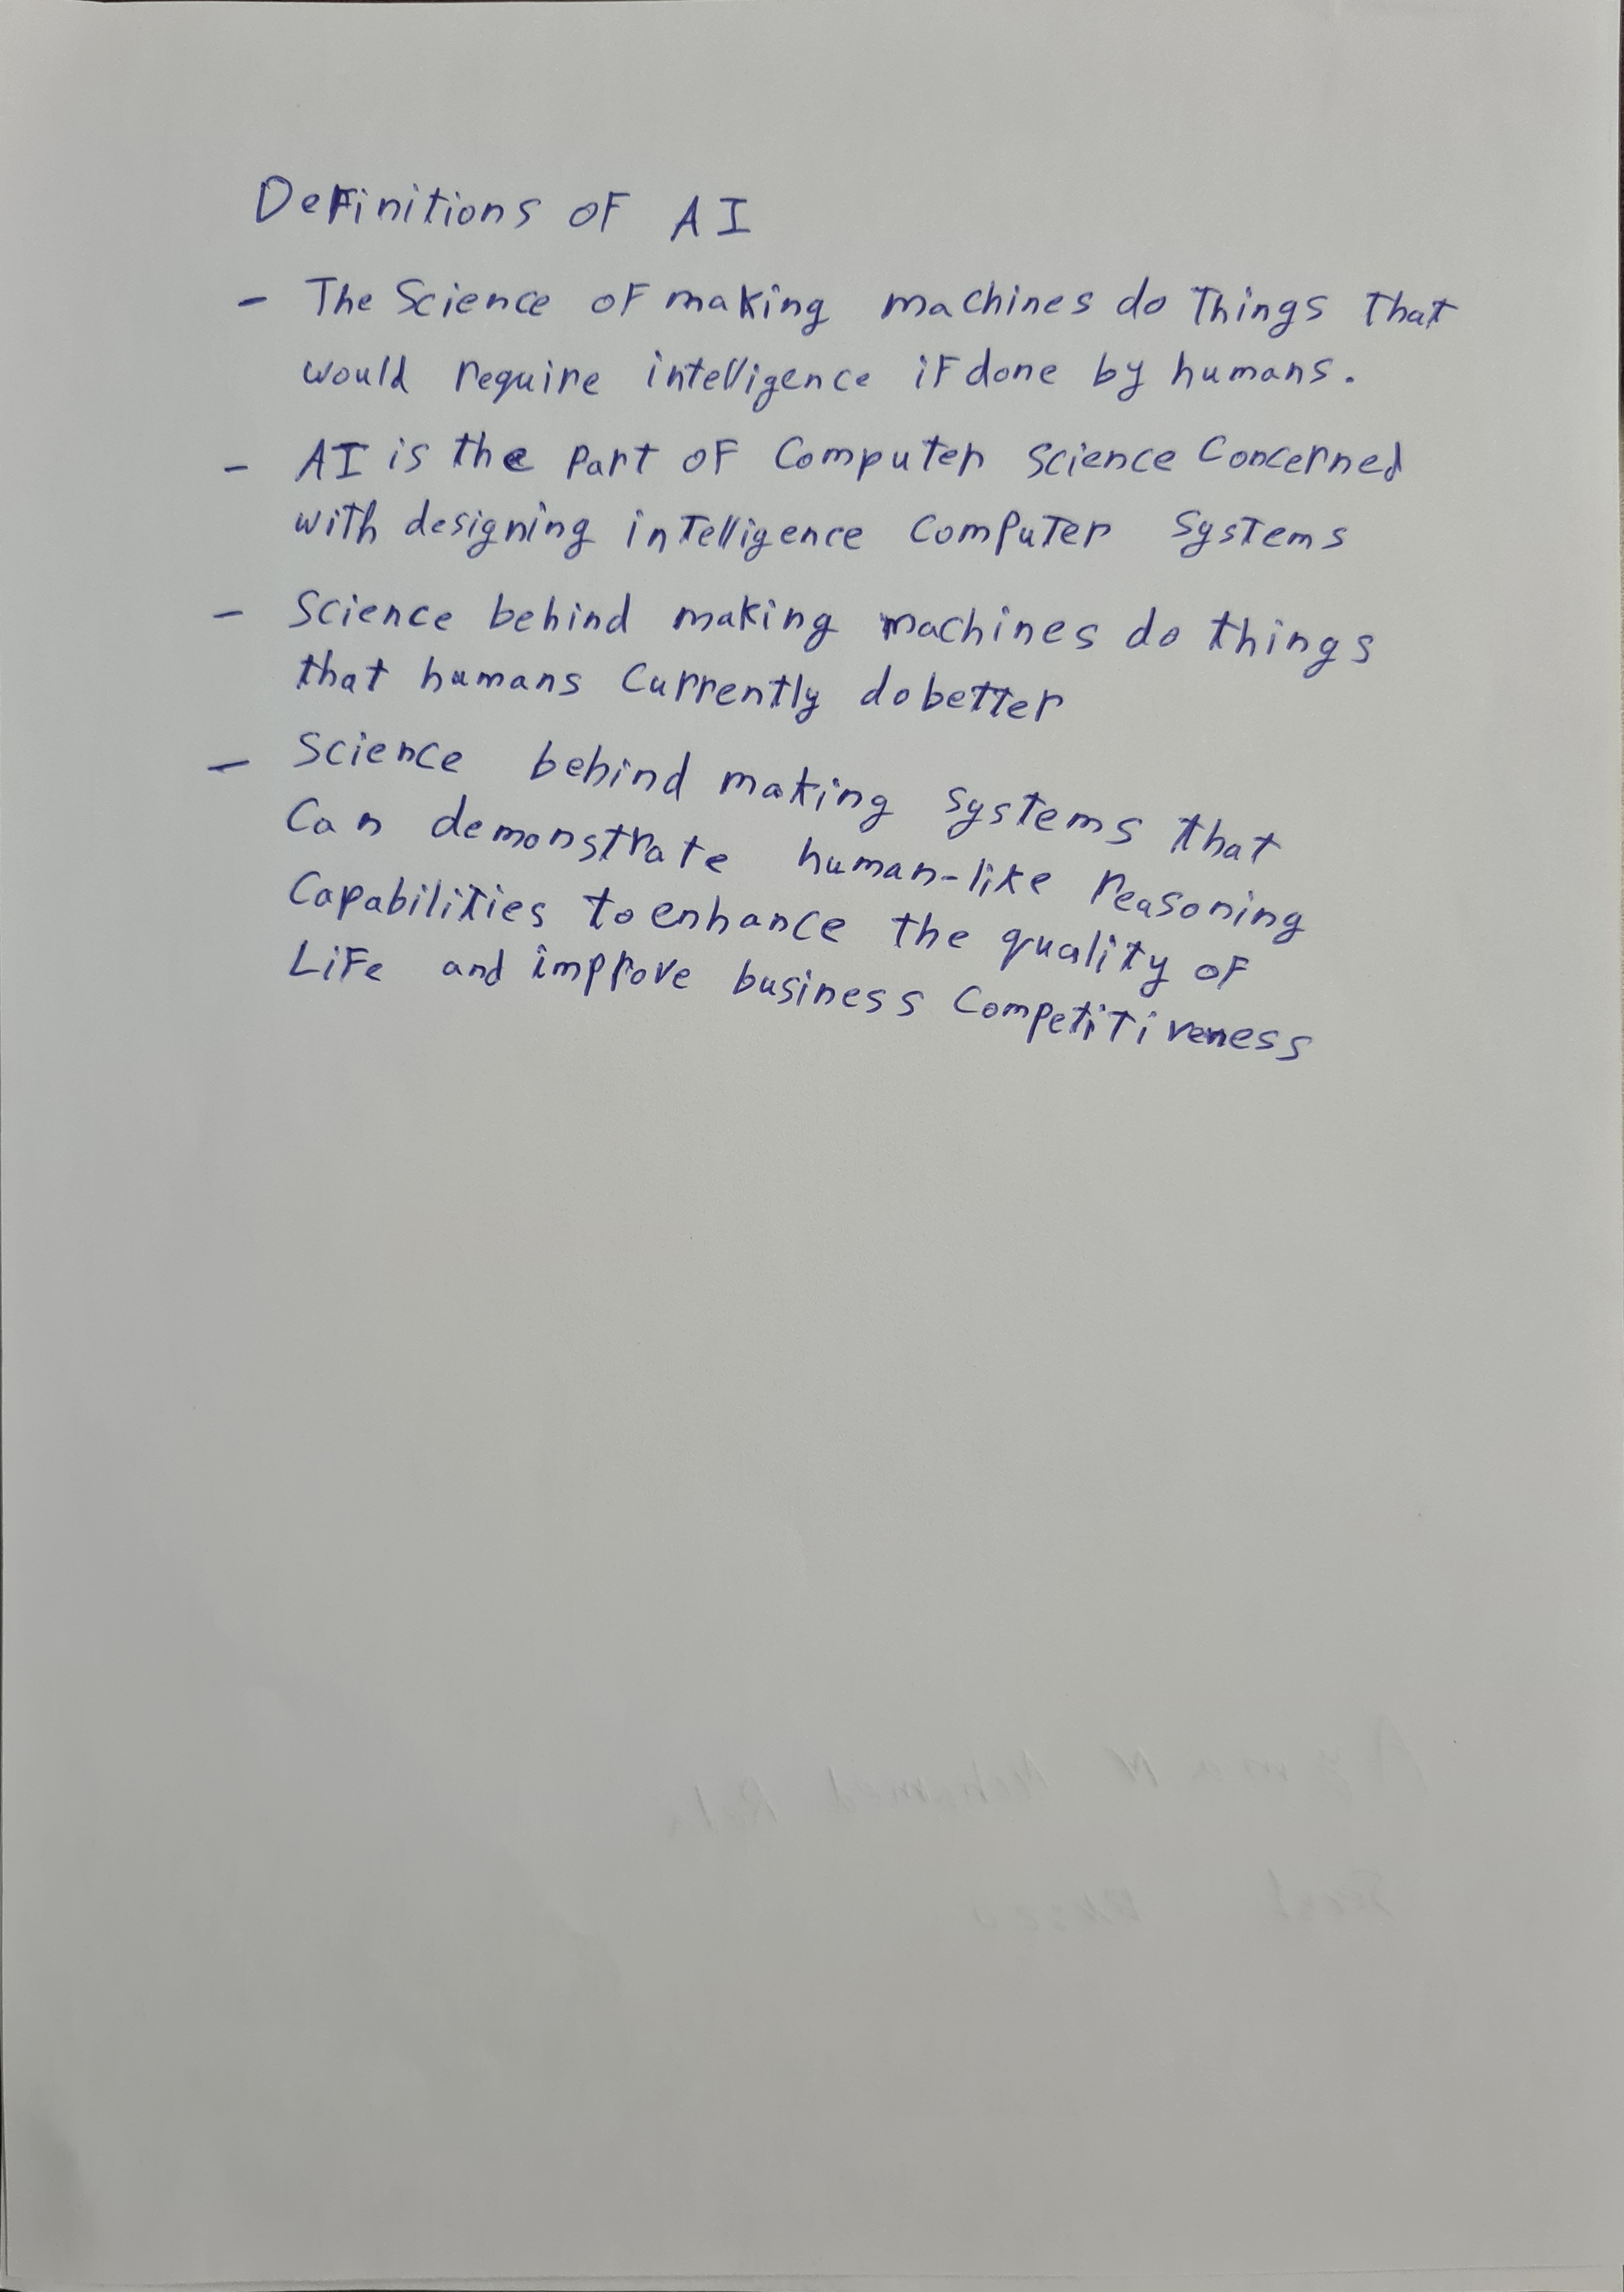 Definitions of AI
- The Science of making machines do Things That
would require intelligence if done by humans.
- AI is the part of Computer Science Concerned
with designing intelligence Computer Systems
- Science behind making machines do things
that humans Currently do better
- Science behind making systems that
Can demonstrate human-like reasoning
Capabilities to enhance the quality of
Life and improve business Competitiveness